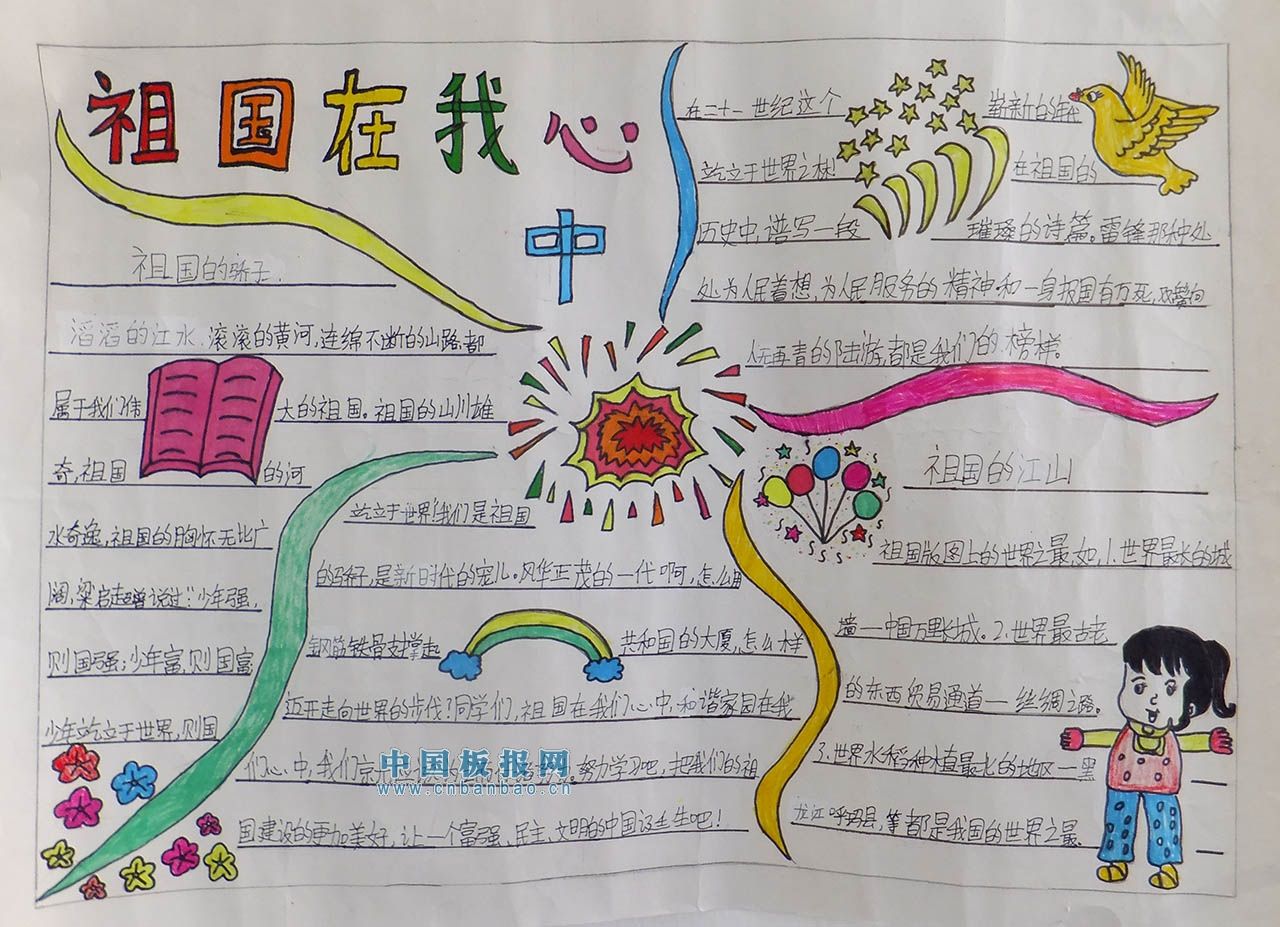 祖国在我心
中
祖国的骄子.
滔滔的江水,滚滚的黄河,连绵不断的山路.都
属于我们伟大的祖国。祖国的山川雄
奇,祖国的河
水奇逸,祖国的胸怀无比广
阔,梁启超曾说过:"少年强,
则国强;少年富,则国富
少年屹立于世界,则国
屹立于世界!我们是祖国
的骄子,是新时代的宠儿。风华正茂的一代啊,怎么用
钢筋铁骨支撑起共和国的大厦,怎么样
迈开走向世界的步伐?同学们,祖国在我们心中,和谐家园在我
们心中,我们
努力学习吧,把我们的祖
国建设的更加美好,让一个富强、民主、文明的中国诞生吧!
中国板报网
www.cnbanbao.cn
在二十一世纪这个崭新的
屹立于世界之林!在祖国的
历史中,谱写一段璀璨的诗篇。雷锋那种处
处为人民着想,为人民服务的精神和一身报国有万死,双鬓向
人无再青的陆游,都是我们的榜样。
祖国的江山
祖国版图上的世界之最,如,1.世界最长的城
墙一中国万里长城。2.世界最古老
的东西贸易通道一丝绸之路。
3.世界水稻种植最北的地区一黑
龙江呼玛县,等都是我国的世界之最.